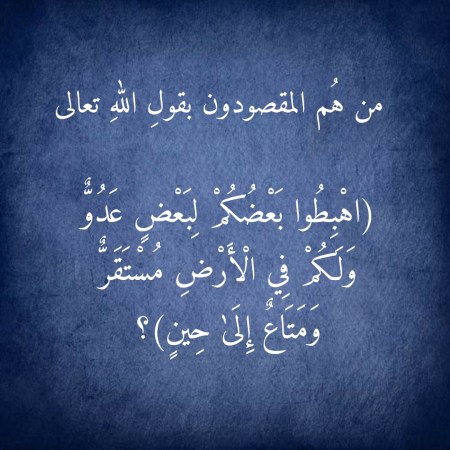 من هُم المقصودون بقولِ اللهِ تعالى
(اهْبِطُوا بَعْضُكُمْ لِبَعْضٍ عَدُوٌّ
وَلَكُمْ فِي الْأَرْضِ مُسْتَقَرٌّ
وَمَتَاعٌ إِلَىٰ حِينٍ)؟